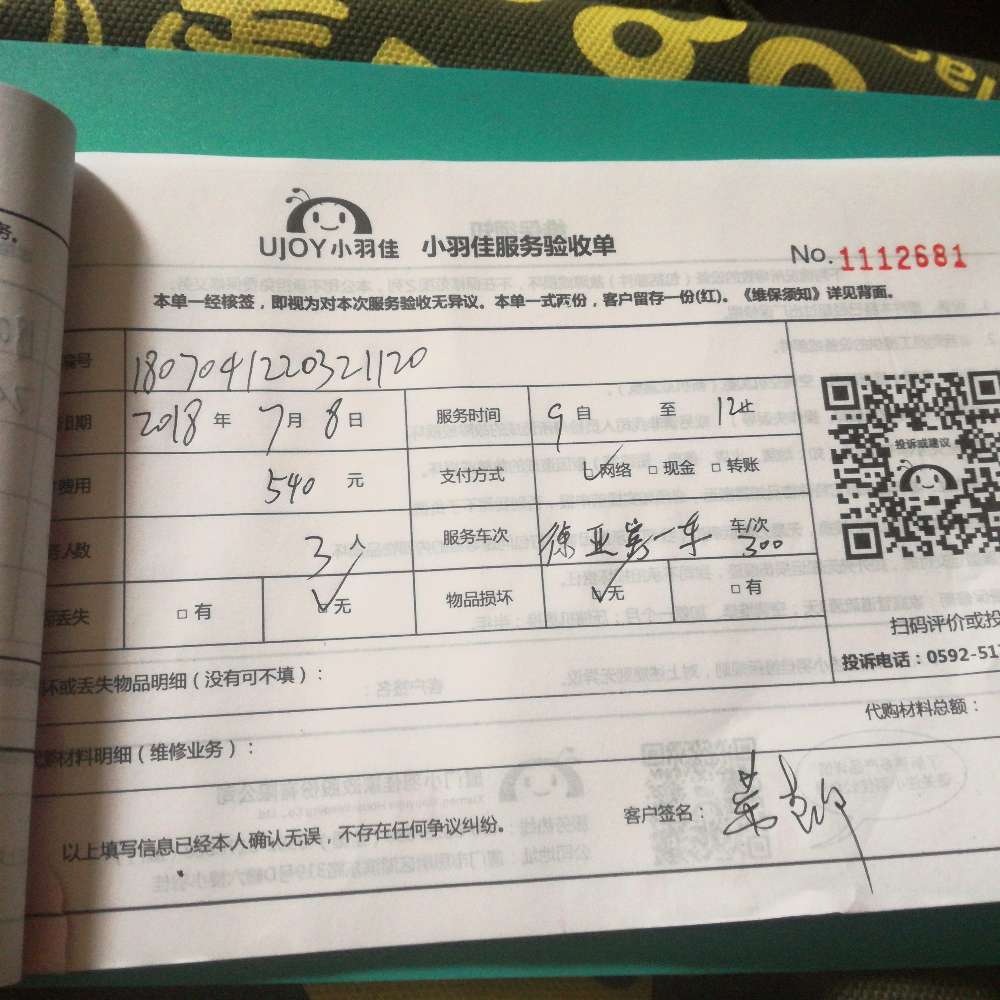 UJOY小羽佳 小羽佳服务验收单
No. 1112681
本单一经核签，即视为对本次服务验收无异议。本单一式两份，客户留存一份(红)。《维保须知》详见背面。
编号 1807041220321120
日期 2018 年 7 月 8 日 服务时间 9 自 至 12止
费用 540 元 支付方式 □网络 □现金 □转账
人数 3 人 服务车次 徐亚 一车 车/次 300
丢失 □有 □无 物品损坏 □无 □有
投诉或建议
扫码评价或投
投诉电话：0592-51
坏或丢失物品明细（没有可不填）：
代购材料总额：
材料明细（维修业务）：
以上填写信息已经本人确认无误，不存在任何争议纠纷。
客户签名：